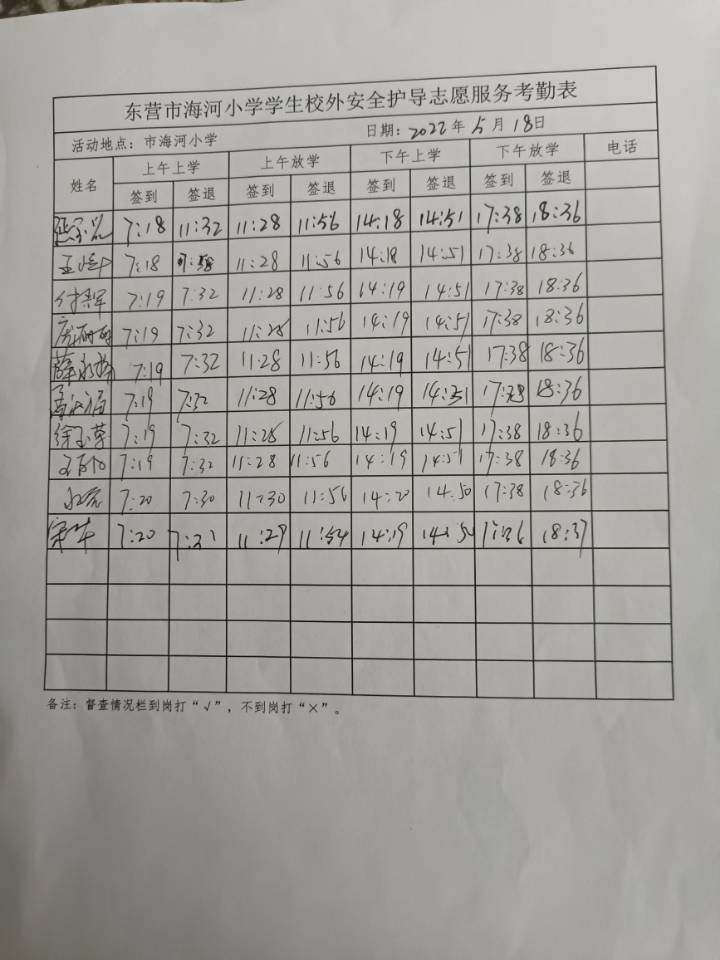 东营市海河小学学生校外安全护导志愿服务考勤表
活动地点：市海河小学 日期：2022年5月18日
姓名 上午上学 上午放学 下午上学 下午放学 电话
签到 签退 签到 签退 签到 签退 签到 签退
7:18 11:32 11:28 11:56 14:18 14:51 17:38 18:36
7:18 11:28 11:56 14:18 14:51 17:38 18:36
7:19 7:32 11:28 11:56 14:19 14:51 17:38 18:36
7:19 7:32 11:28 11:56 14:19 14:51 17:38 18:36
7:19 7:32 11:28 11:56 14:19 14:51 17:38 18:36
7:19 7:32 11:28 11:56 14:19 14:51 17:38 18:36
徐玉萍 7:19 7:32 11:28 11:56 14:19 14:51 17:38 18:36
7:19 7:32 11:28 11:56 14:19 14:51 17:38 18:36
7:20 7:30 11:30 11:56 14:20 14:50 17:38 18:36
7:20 7:31 11:29 11:54 14:19 14:50 18:37
备注：督查情况栏到岗打“√”，不到岗打“×”。